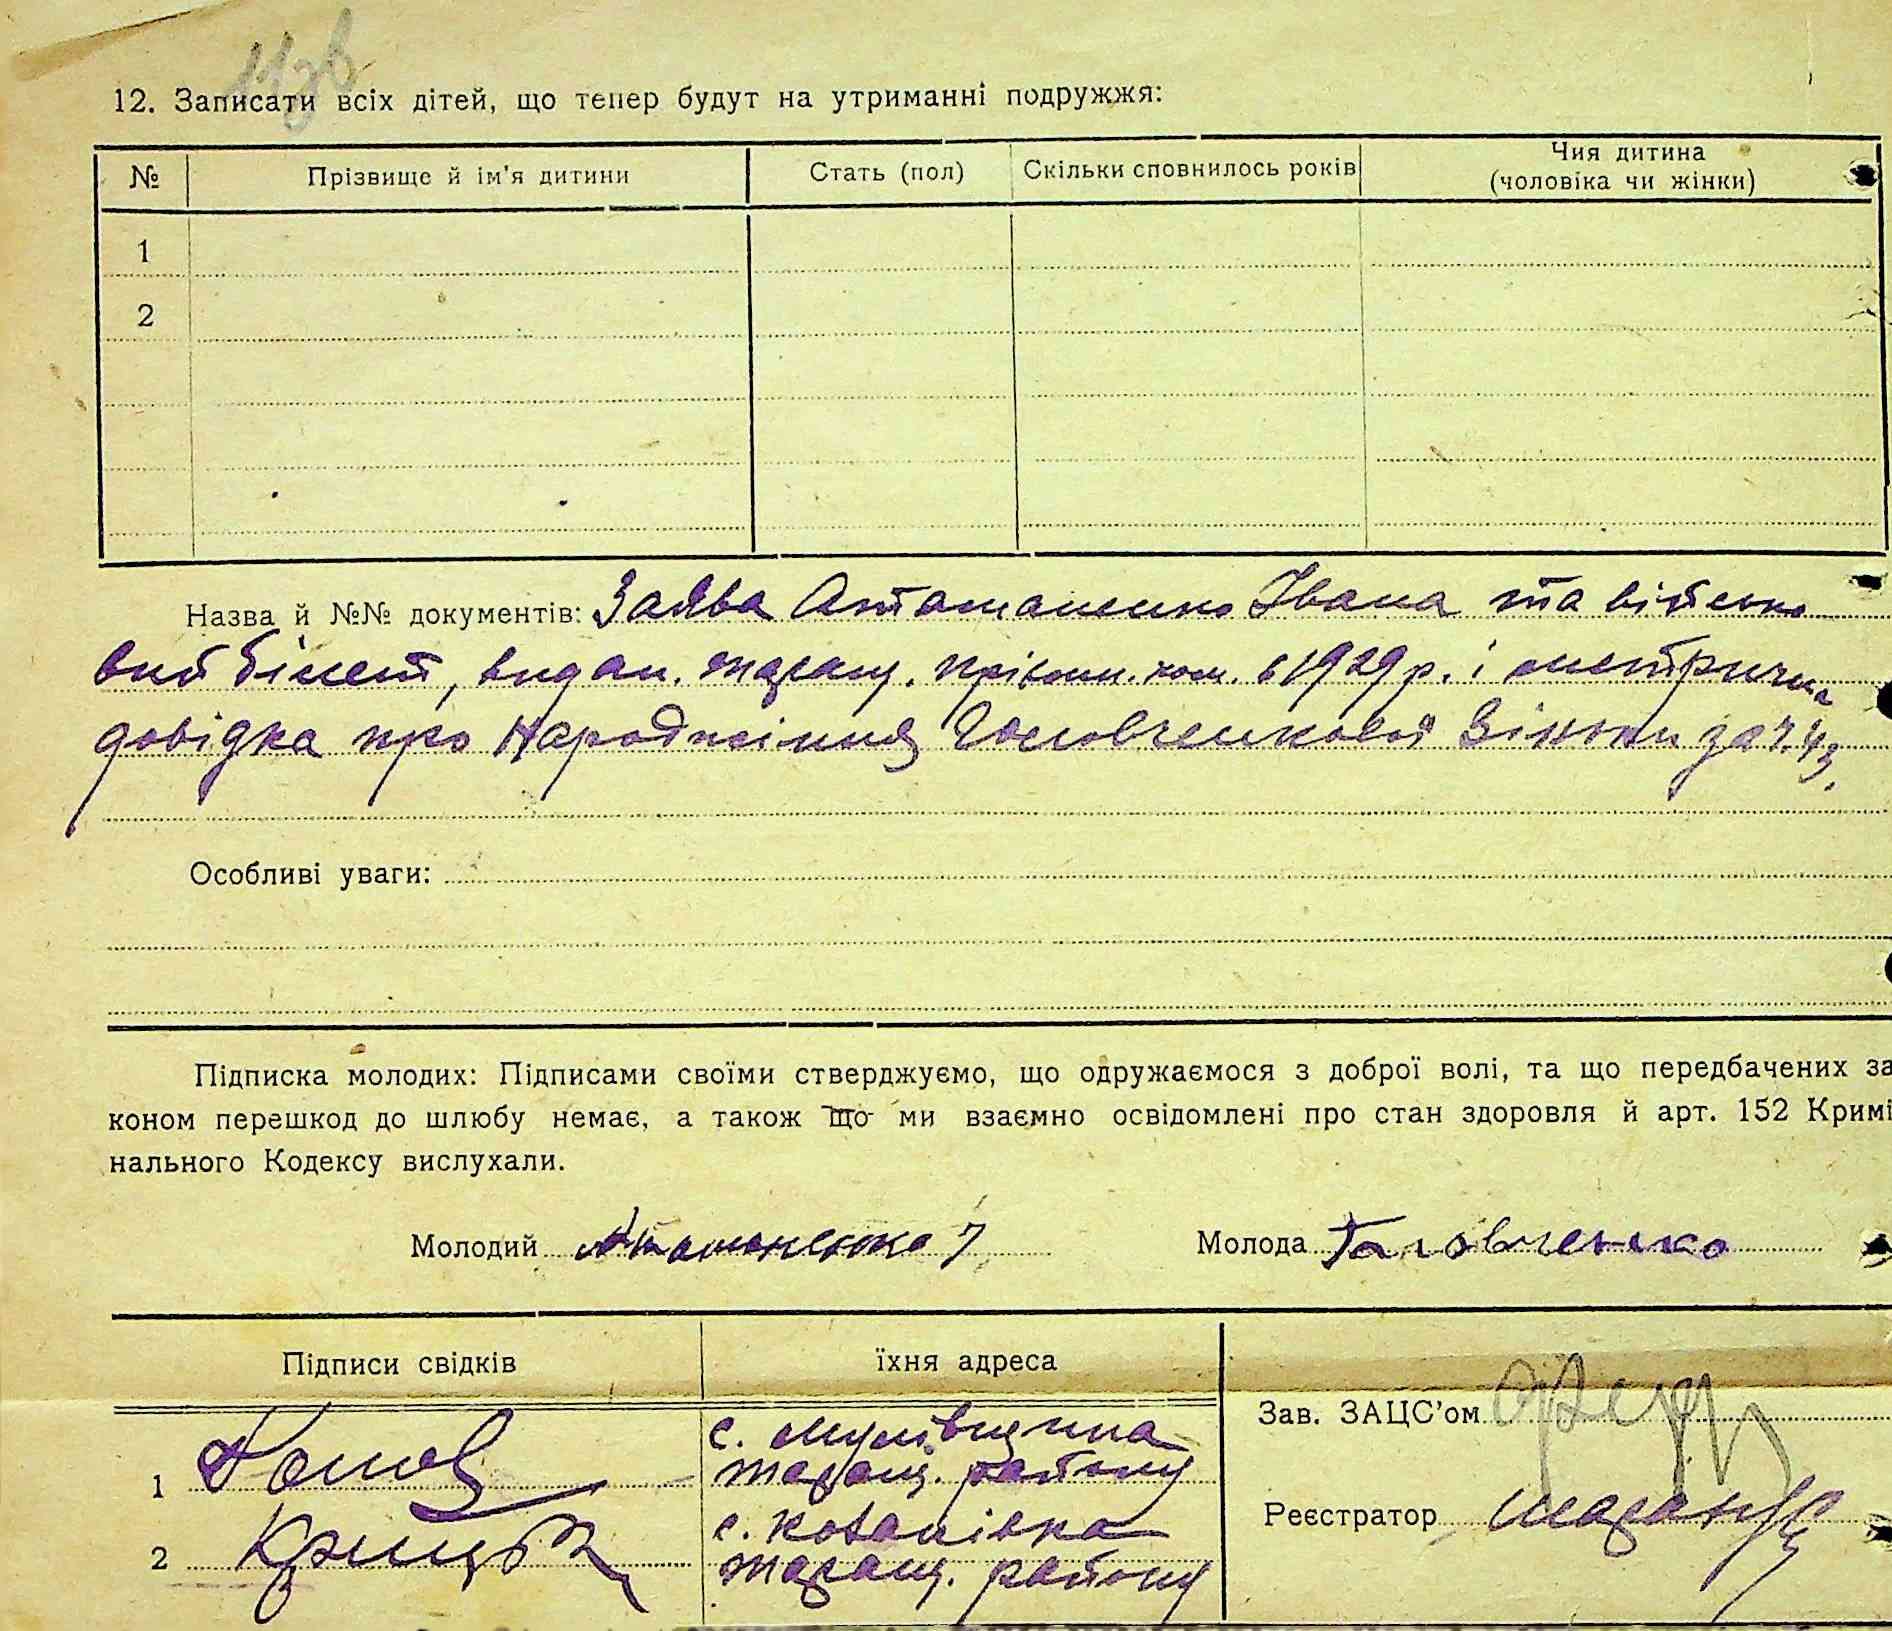 12. Записати всіх дітей, що тепер будут на утриманні подружжя:
№ Прізвище й ім'я дитини Стать (пол) Скільки сповнилось років Чия дитина
(чоловіка чи жінки)
1
2
Назва й №№ документів: Заява Атаманенко Івана та військо
вий білет, видан. Таращ. в 1929 р. і метрична
довідка про народження Головченкової за ч. 43.
Особливі уваги:
Підписка молодих: Підписами своїми стверджуємо, що одружаємося з доброї волі, та що передбачених за
коном перешкод до шлюбу немає, а також що ми взаємно освідомлені про стан здоровля й арт. 152 Кримі
нального Кодексу вислухали.
Молодий Атаманенко І Молода Головченко
Підписи свідків їхня адреса
Зав. ЗАЦС'ом
1 с. Лукʼ
Таращ. району
Реєстратор
2 с. Ковалівка
Таращ. району